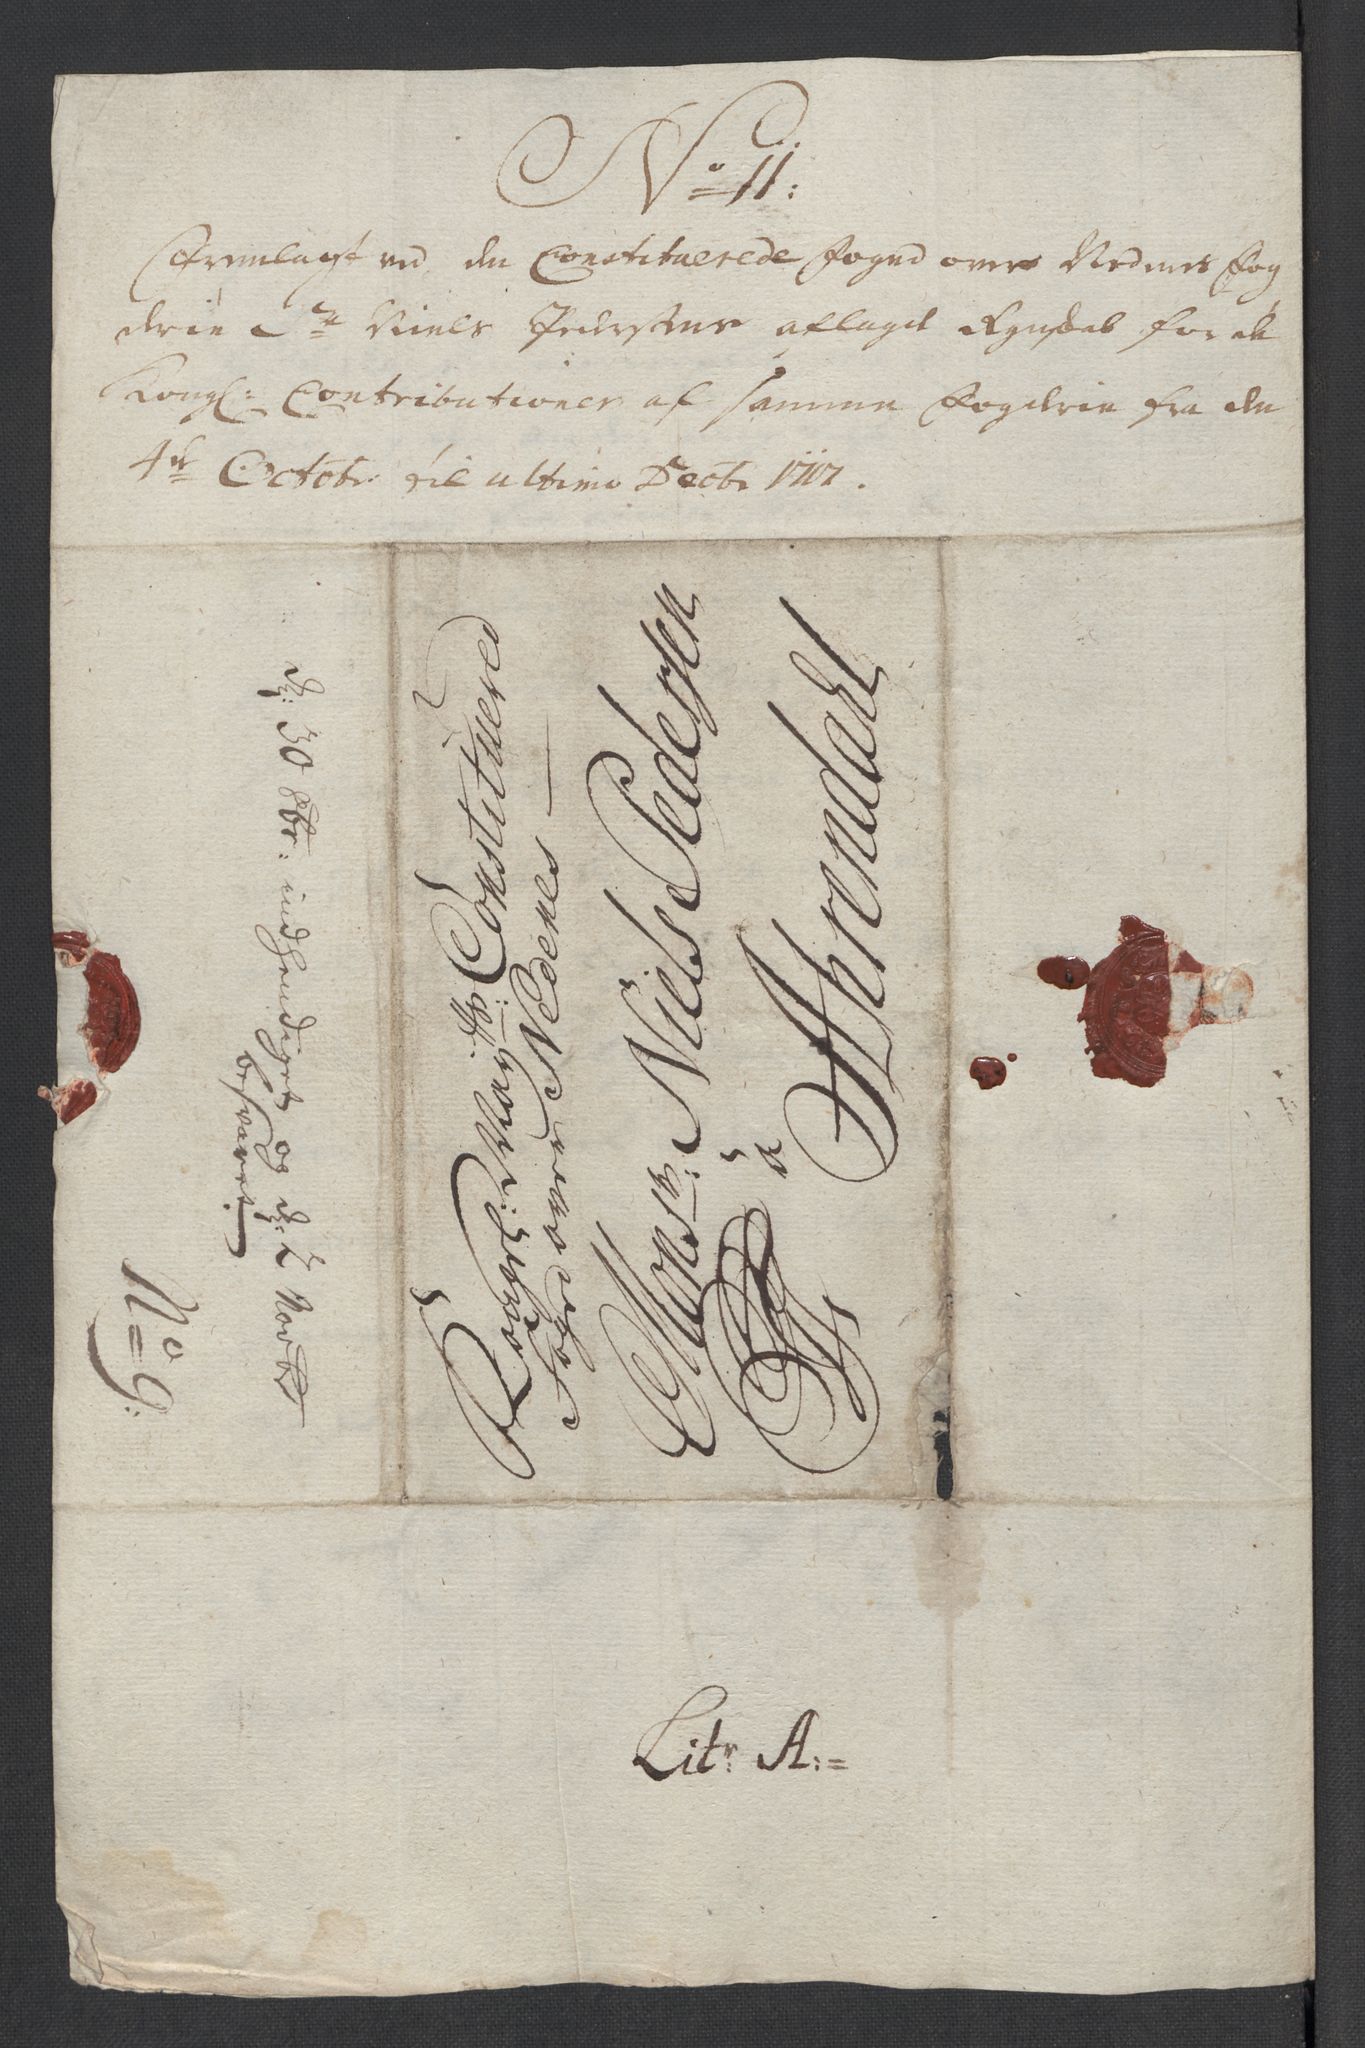 No 11:
Fremlagt ved den Constituerede foged over Nedenes Fog
derie Sr Niels Pedersens aflagde Regnskab for de
Kongl: Contributioner af samme Fogderie fra den
4de Octobr til ultimo Decbr 1717.
Kongl: May:ts Constituered
foged over Nedenes
Monsr: Niels Pedersen
à
Ahrendahl
d: 30 8br: indhendiget og d: 2 Novb
besvaret.
No 9:
Litr A: